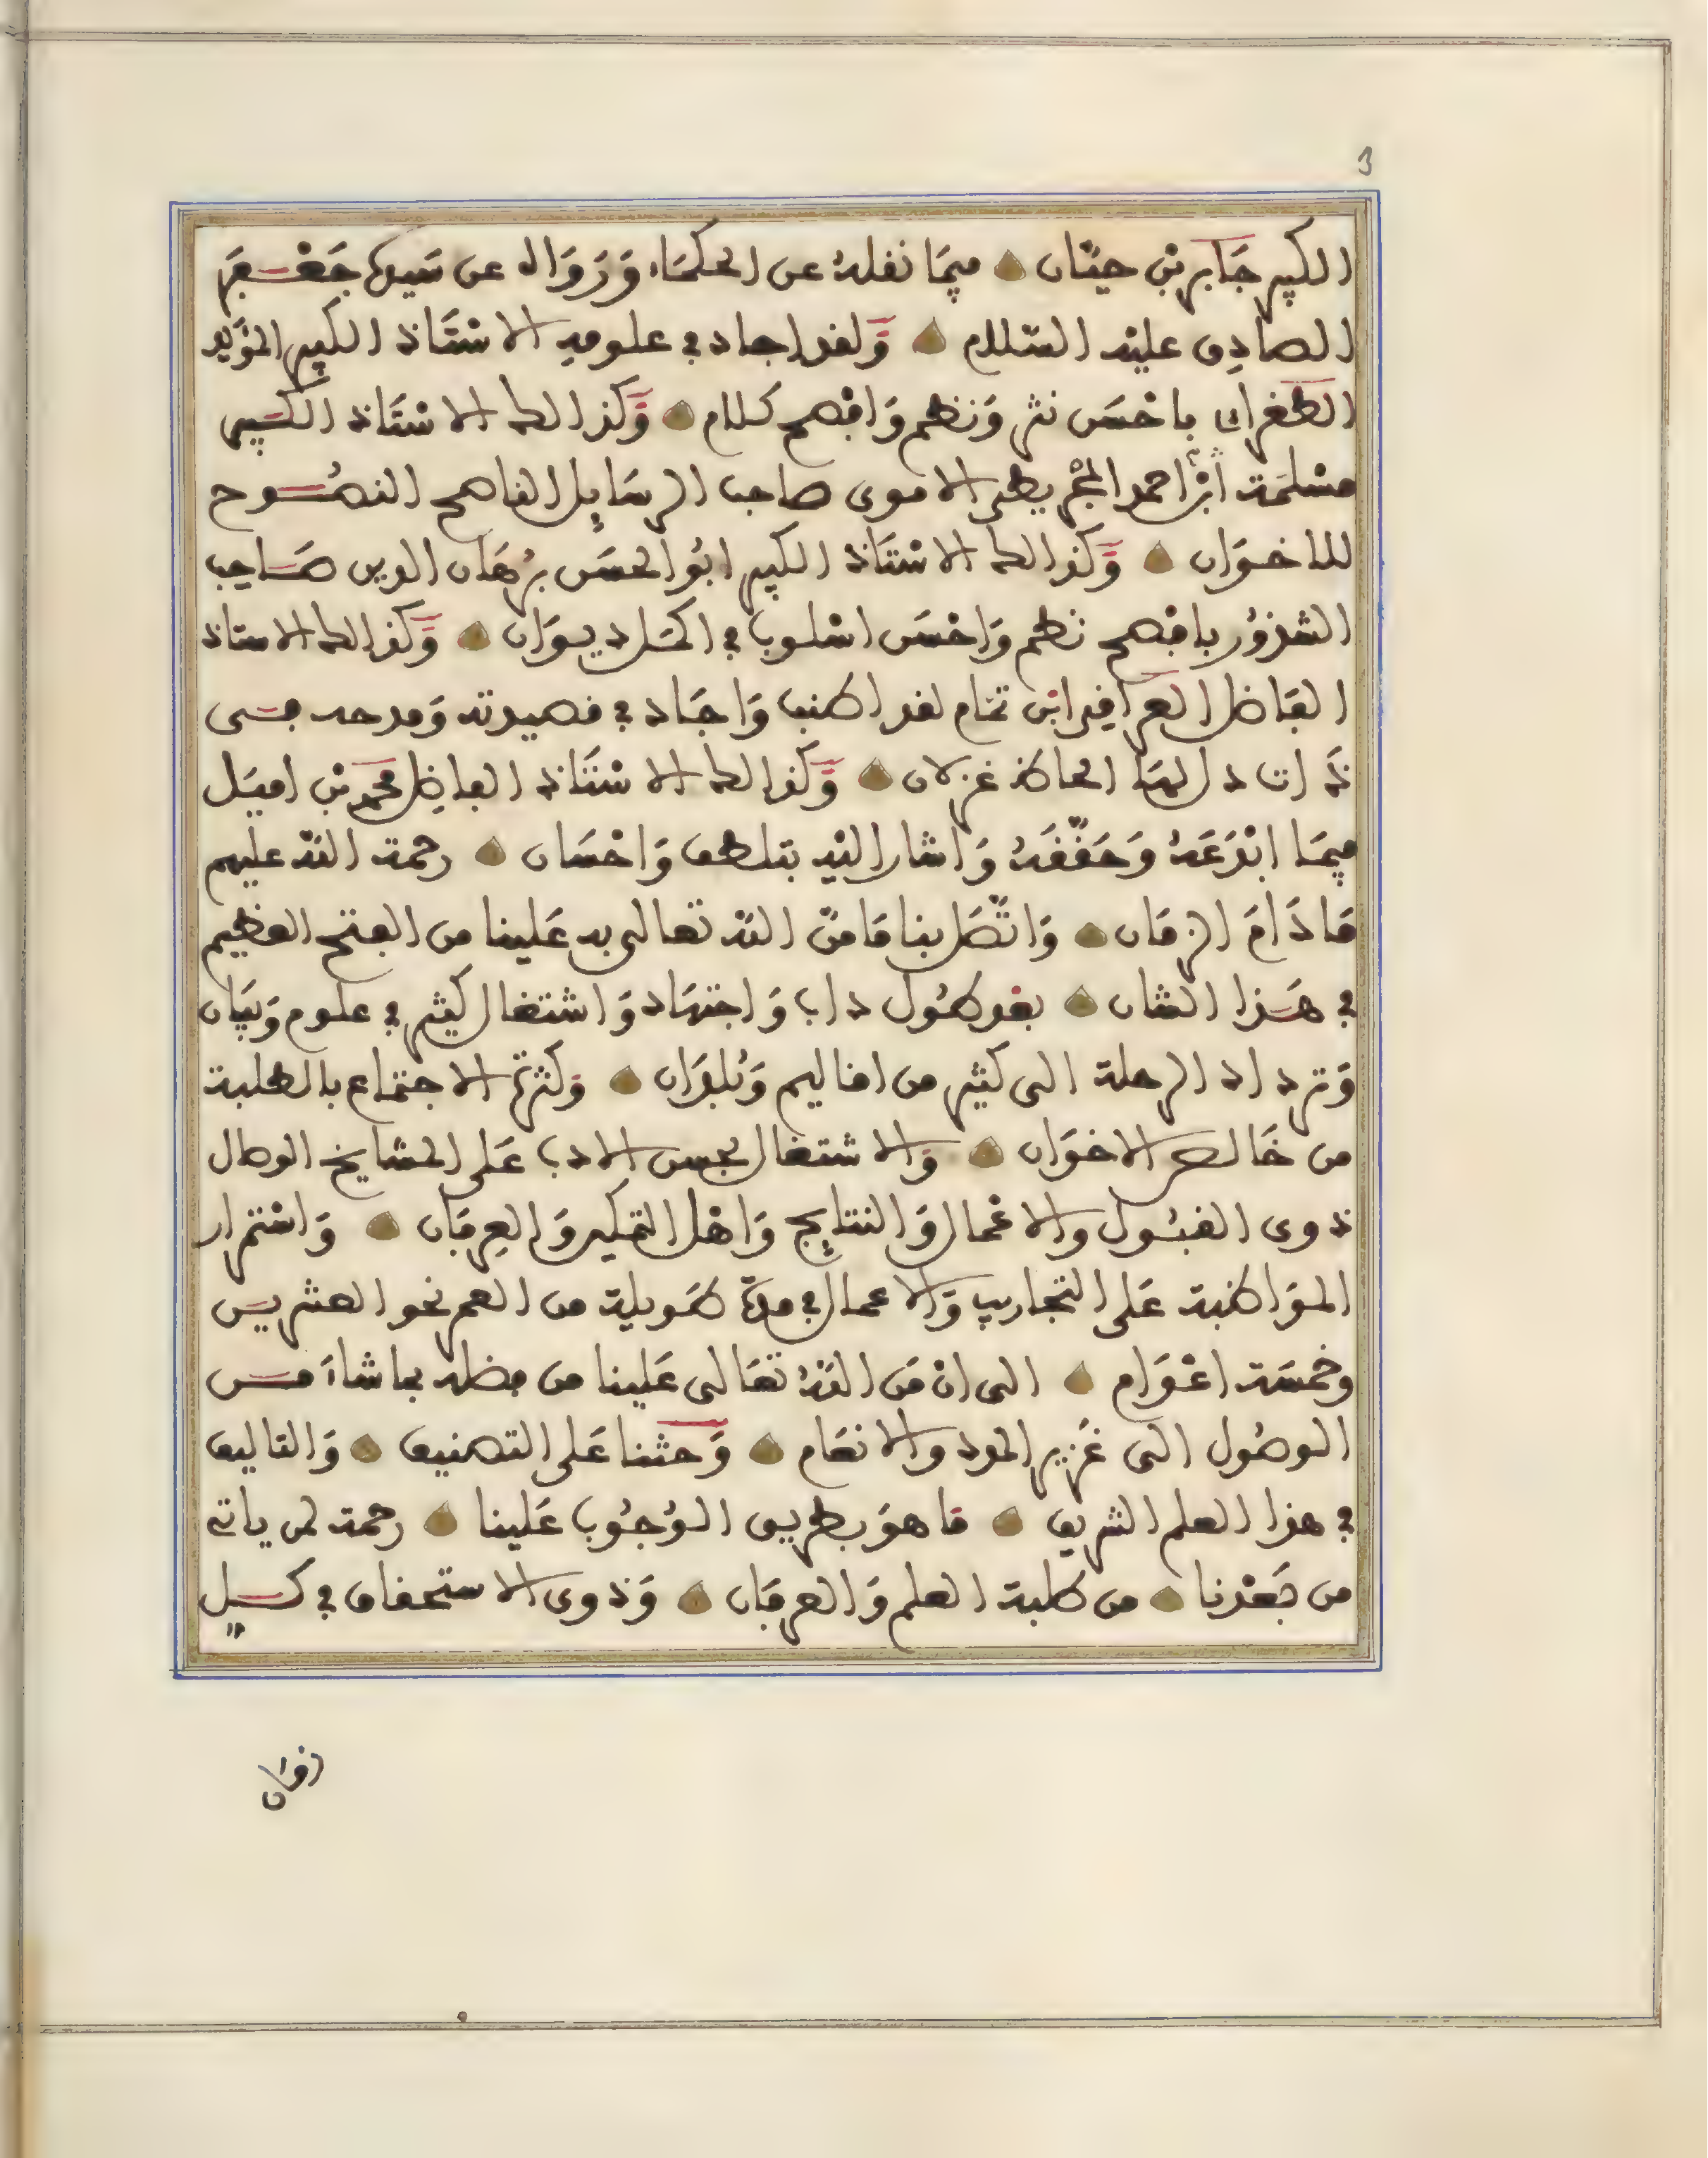 3
الكبير جَابر بْن حيّان ۞ فيمَا نقلهُ عن الحكمَاء وَرَوَاه عن سَيدى جَعْفَر
الصادِق عليْه السّلام ۞ وَلقد اجاد في علومِه الاسْتَاذ الكبير المؤَيد
الطغرائى باحْسَن نثر وَنظم وَافْصح كلام ۞ وَكذالك الاسْتَاذ الكبير
مسْلمَة ابْن احمد المجْريطى الاموى صاحب الرسَايل الناصح النصُوح
للاخوَان ۞ وَكذالك الاسْتَاذ الكبير ابُو الحسَن برْهَان الدين صَاحِب
الشذوُر بافْصح نظم وَاحْسَن اسْلوب في اكمَل ديوَان ۞ وَكذالك الاستاذ
الفَاضل العراقِى ابْن تمّام لقد اطنب وَاجَاد في قصيدته وَمدحه فى
ذَات دل لهَا الحاظ غزلان ۞ وَكذالك الاسْتَاذ الفاضِل محمد بْن اميَل
فيمَا ابْدَعَهُ وَحَقّقَهُ وَاشار اليْه بتلطف وَاحْسَان ۞ رحمة اللّه عليهم
مَا دَامَ الزمَان ۞ وَاتّصَل بنا مَا منّ اللّه تعالى به عَلينا من الفتح العظيم
في هَذا الشان ۞ بعد طُول داب وَاجتهَاد وَاشتغال كثير في علوم وَبيَان
وَترداد الرحلة الى كثير من اقاليم وَبُلدَان ۞ وَكثرة الاجتماع بالطلبة
من خَالص الاخوَان ۞ وَالاشتغال بحسن الادب عَلى المشايخ الوصال
ذوى القبُول والاعْمال وَالنتايج وَاهْل التمكين وَالعِرفَان ۞ وَاسْتمرار
الموَاظبة عَلى التجاريب وَالاعمال في مدّة طَويلة من العمر نحو العشرين
وخمسَة اعْوَام ۞ الى انْ مَن اللّهُ تعَالى عَلينا من فضله بما شاءَ من
الوصُول الى غَزير الجود والانعَام ۞ وَحثنا عَلى التصنيف ۞ وَالتاليف
في هذا العلم الشريف ۞ مَا هوَ بطريق الوُجُوب عَلينا ۞ رحمة لمن ياتى
من بَعْدنا ۞ من طلبة العلم وَالعرفَان ۞ وَذوى الاستحقاق في كل
زمَان